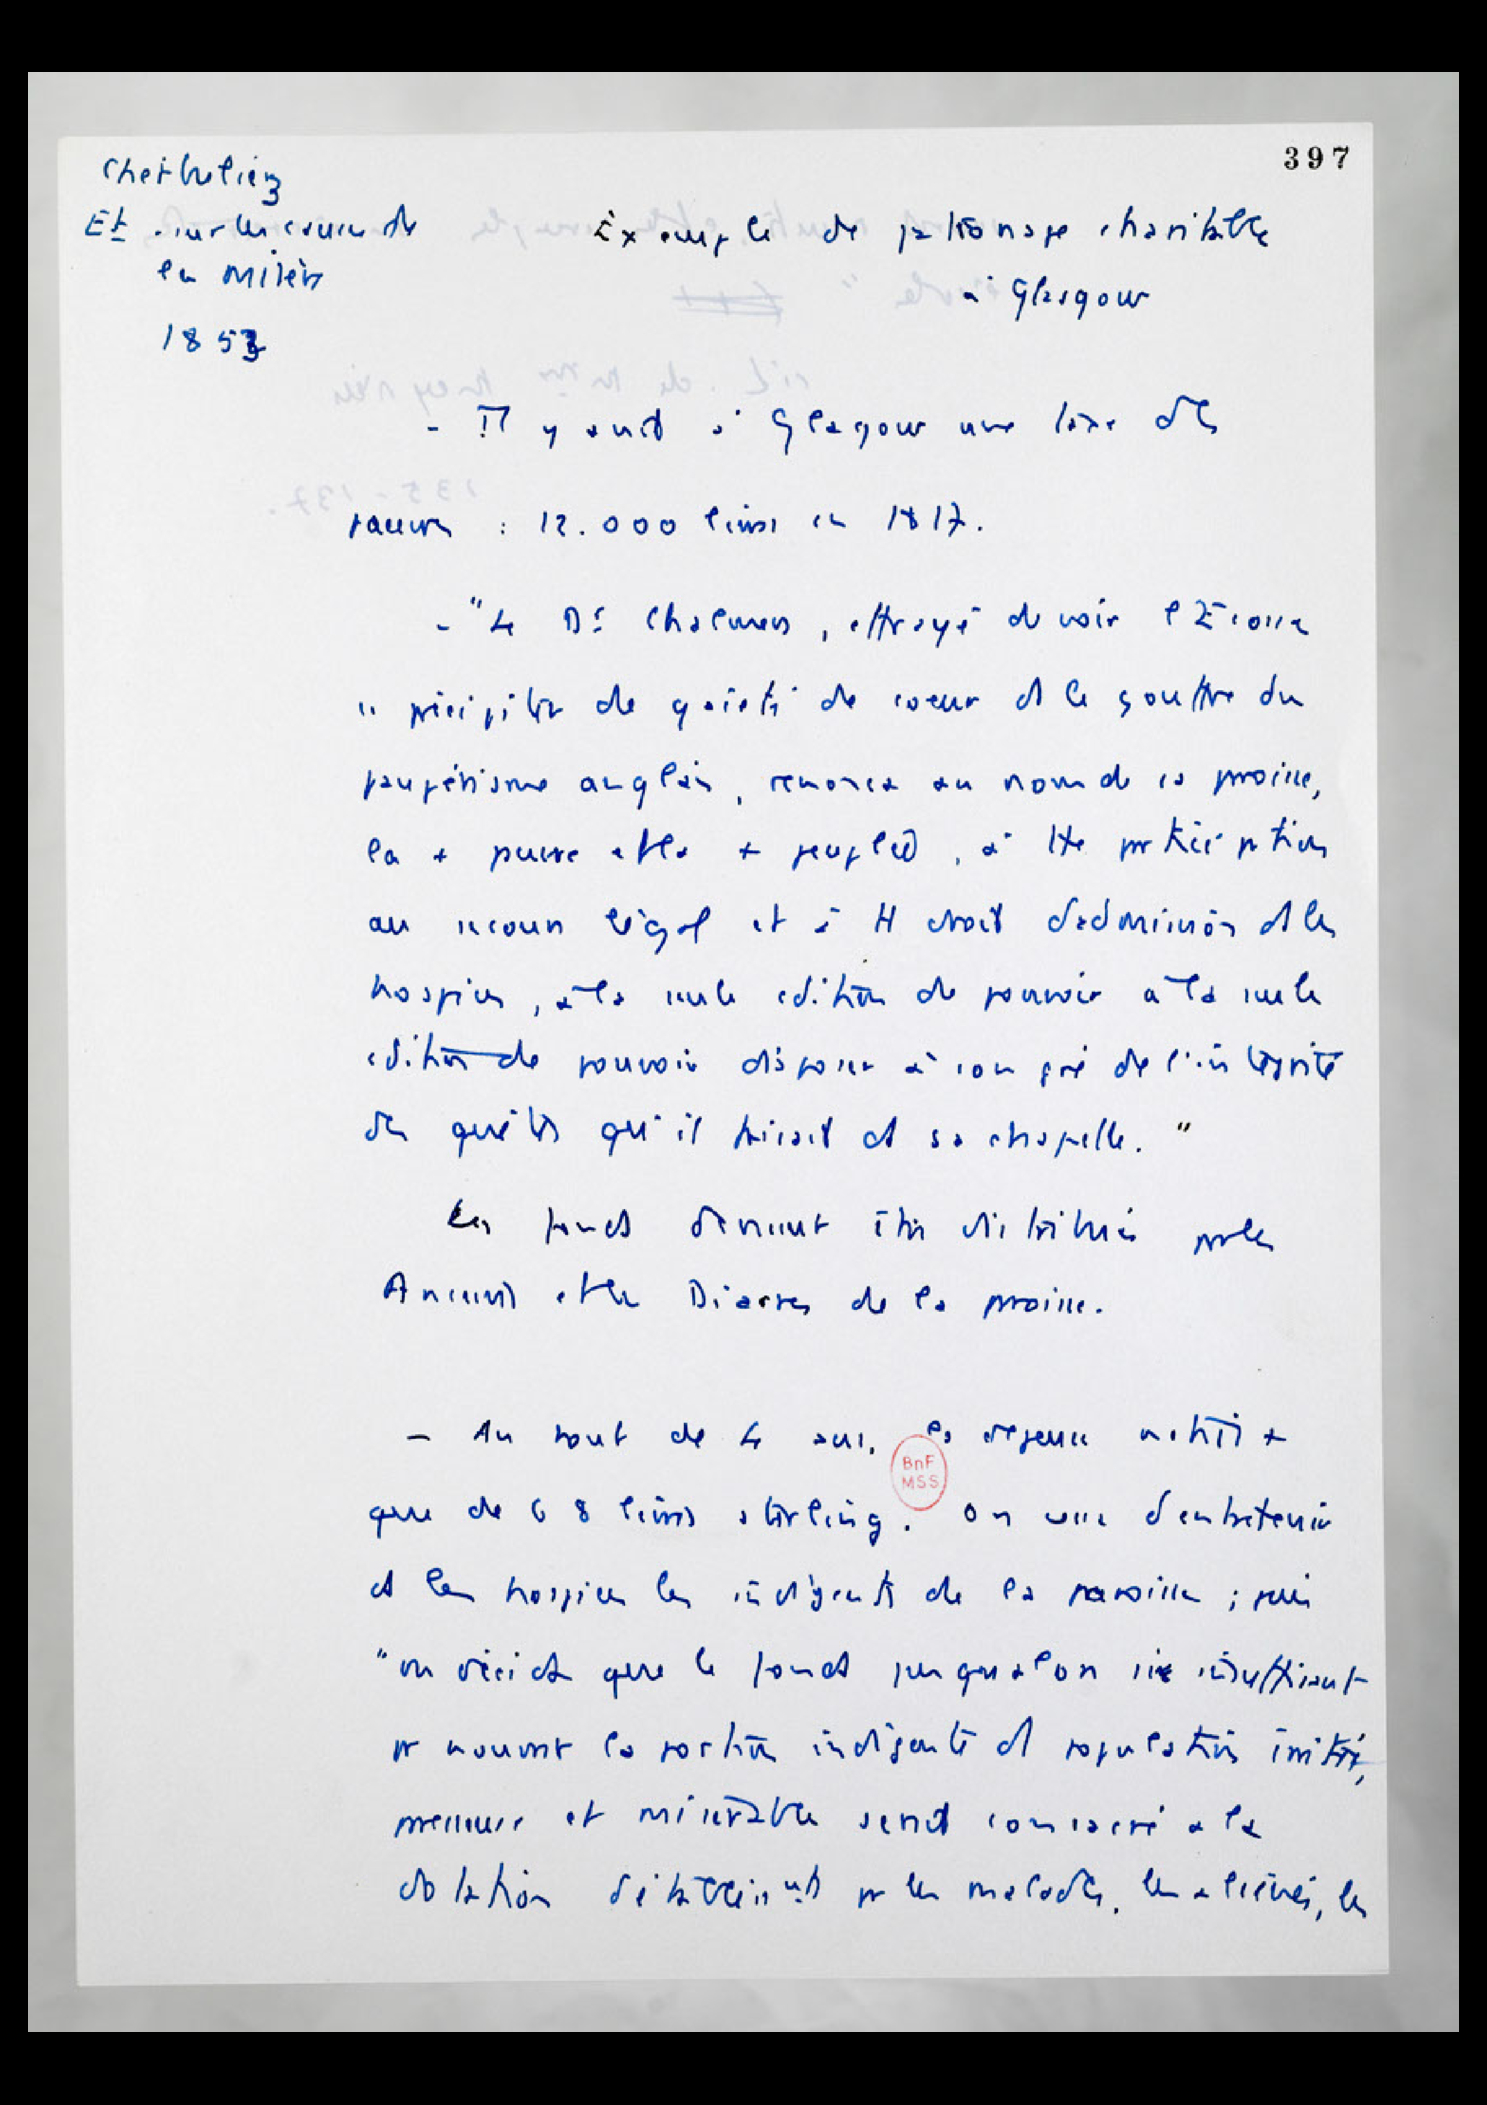 397
Cherbuliez
Et. sur les causes de
la misère
1853
Exemple de patronage charitable
à Glasgow
- Il y avait à Glasgow une taxe des
pauvres : 12.000 livres en 1817.
- "Le Dr Chalmers, effrayé de voir l'Écosse
" précipiter de gaieté de coeur ds le gouffre du
paupérisme anglais, renonça au nom de sa proisse,
la + pauvre et la + peuplée, à tte prticiption
au secours légal et à tt droit d'admission ds les
hospices, à la seule cdition de pouvoir à la seule
cdition de pouvoir disposer à son gré de l'intégrité
des quêtes qu'il faisait ds sa chapelle."
Les fonds devaient être distribués pr les
Anciens et les Diacres de la proisse.
- Au bout de 4 ans, la dépense n'était +
que de 68 livres sterling. On cesse d'entretenir
ds les hospices les indigents de la paroisse ; puis
"on décida que le fonds jusque alon si insuffisant
pr nourrir la portion indigente d population
et misérable serait consacré à la
dotation d'établissmts pr les malades, les aliénés, les
BnF
MSS